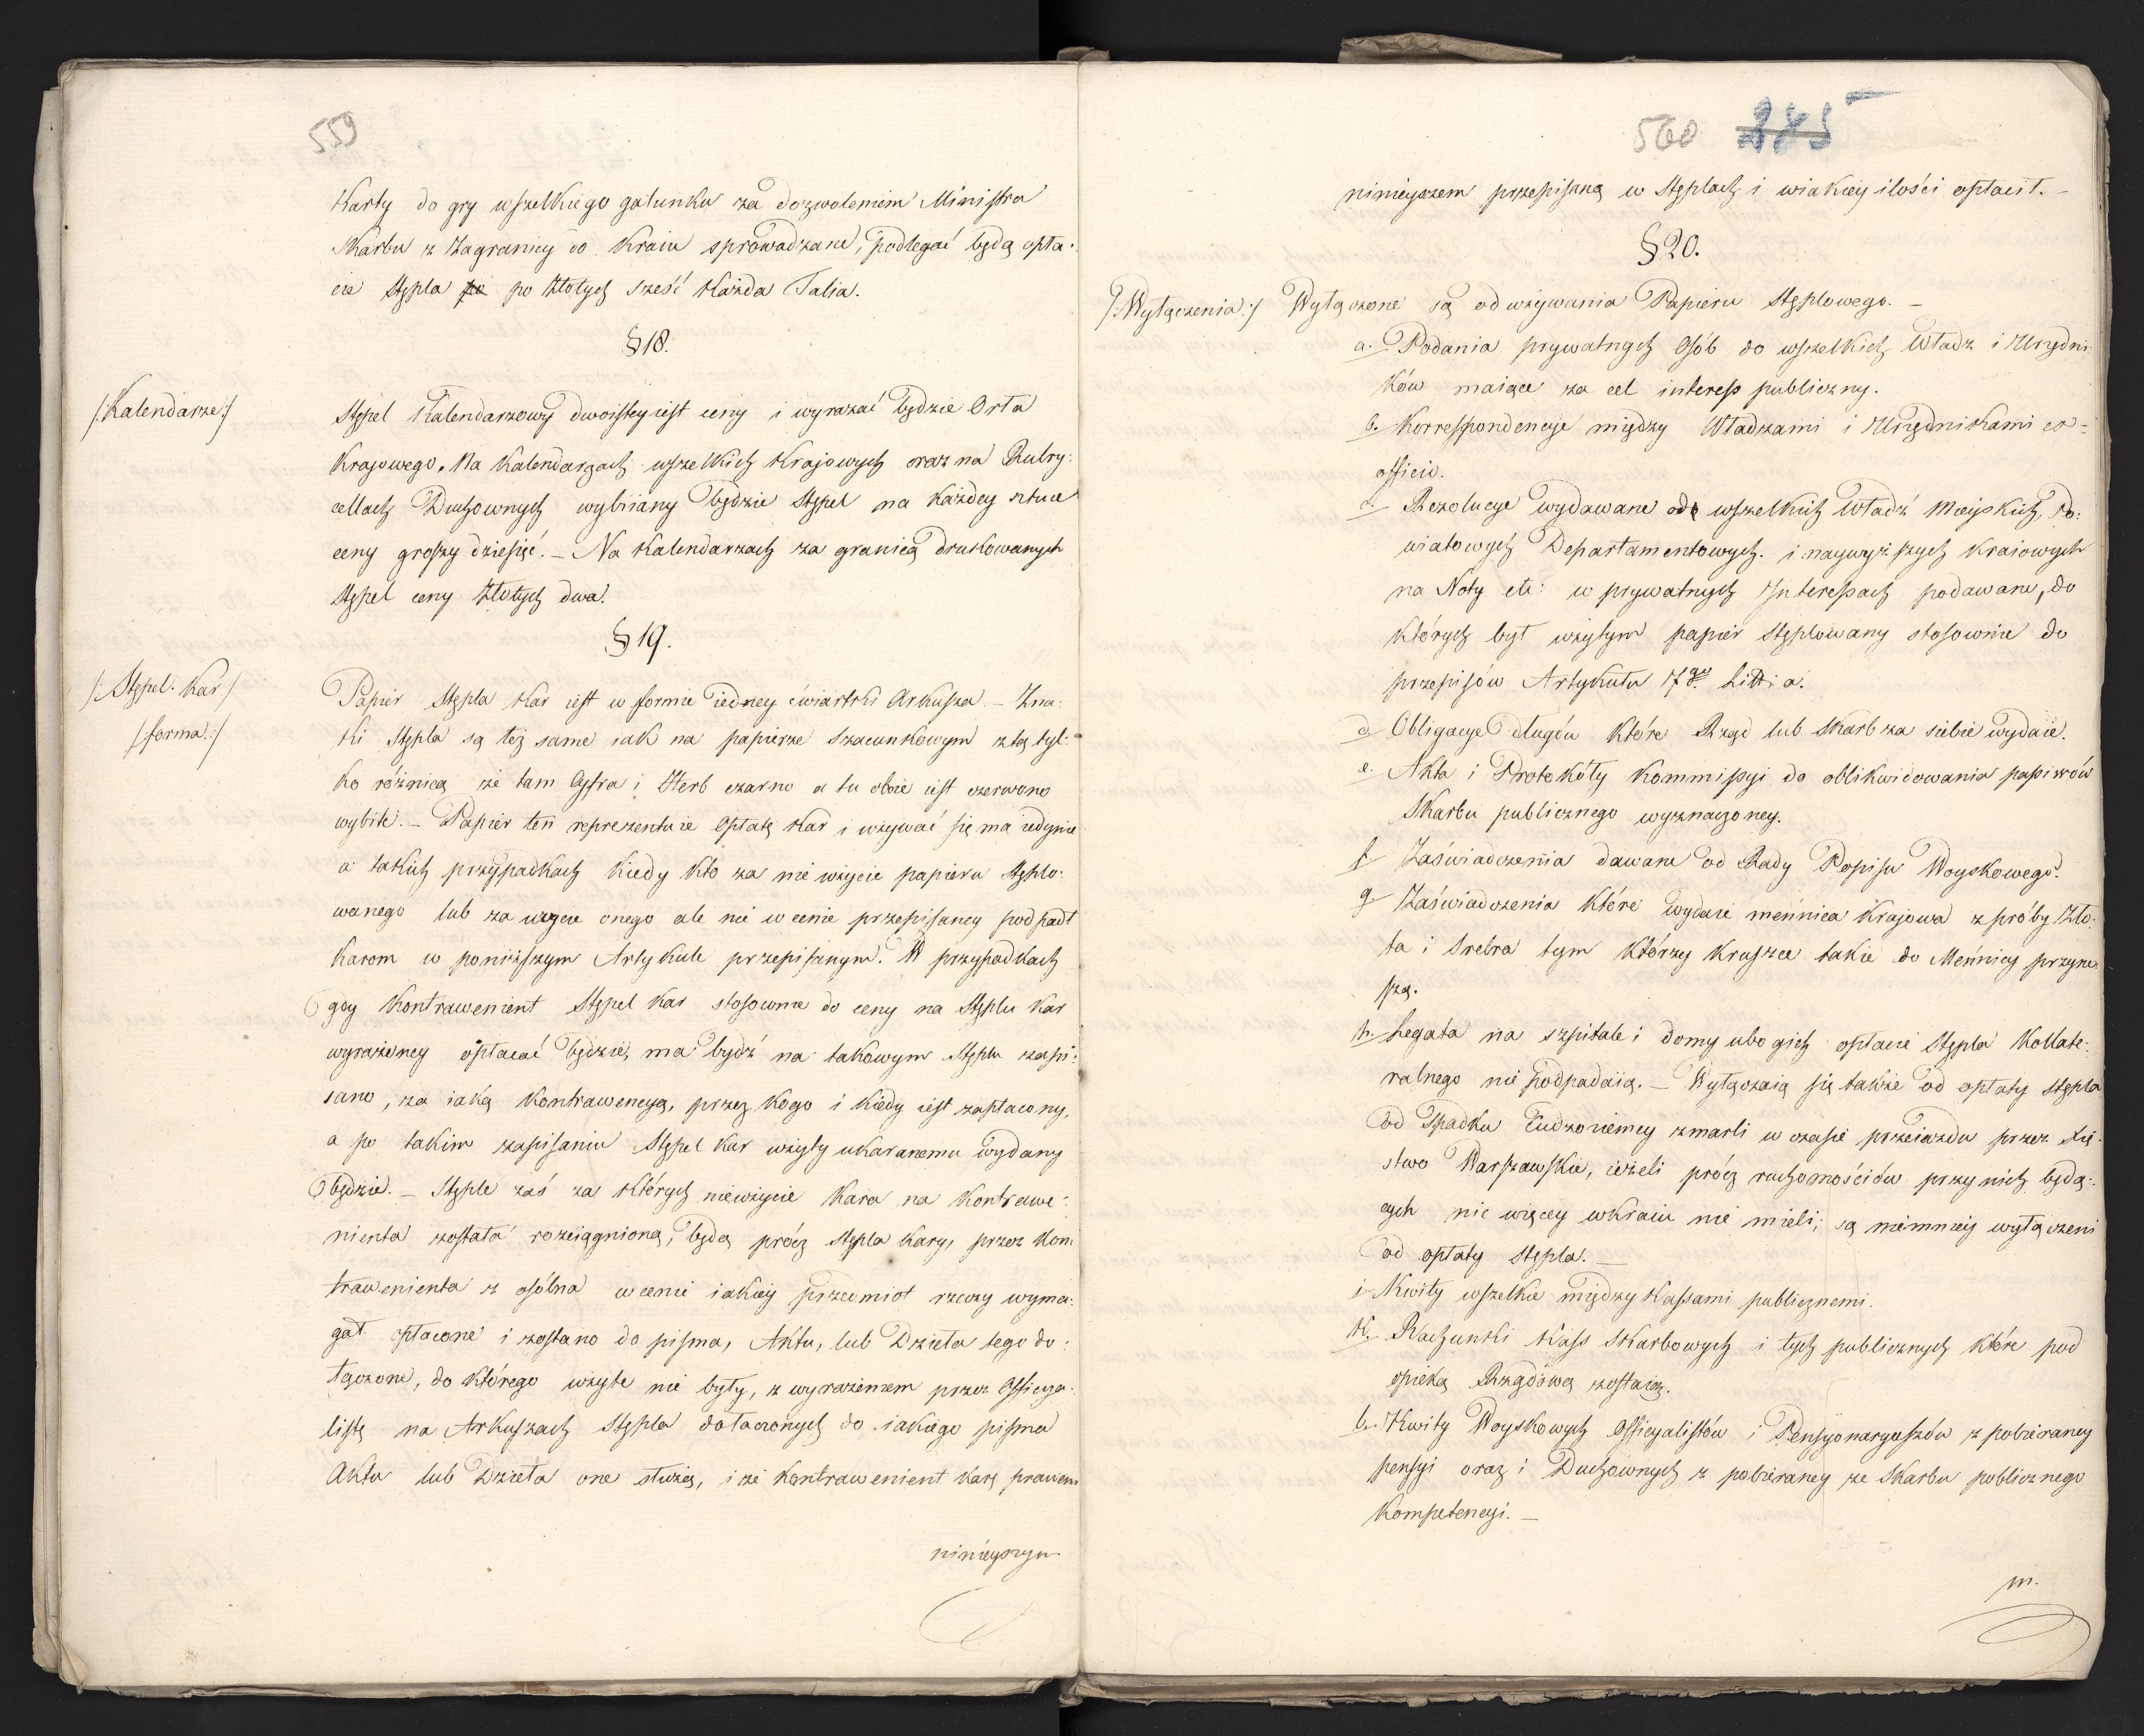 559
Karty do gry wszelkiego gatunku za dozwoleniem Ministra
Skarbu z Zagranicy do Kraiu sprowadzane, podlegać będą opła-
cie Stępla po po Złotych sześć każda Talia.
§ 18.
/:Kalendarze:/
Stępel Kalendarzowy dwoistey iest ceny i wyrażać będzie Orła
Krajowego. Na Kalendarzach wszelkich Krajowych oraz na Rubry:
cellach Duchownych wybiiany będzie Stępel na każdey sztuce
ceny groszy dziesięć. – Na Kalendarzach za granicą drukowanych
Stępel ceny Złotych dwa.
§ 19.
/:Stępel Kar/
/forma:/
Papier Stępla Kar iest w formie iedney ćwiartki Arkusza. – Zna:
ki Stępla są też same iak na papierze szacunkowym z tą tyl:
ko różnicą że tam Cyfra i Herb czarno a tu oboie iest czerwono
wybite. – Papier ten reprezentuie Opłatę Kar i używać się ma iedynie
a takich przypadkach kiedy kto za nie użycie papieru Stęplo:
wanego lub za użycie onego ale nie w cenie przepisaney podpadł
karom w poniższym Artykule przepisanym. W przypadkach
gdy Kontrawenient Stępel Kar stosownie do ceny na Stęplu Kar
wyrażoney opłacać będzie, ma bydź na takowym Stęplu zapi:
sano, za iaką Kontrawencyą, przez kogo i kiedy iest zapłacony,
a po takim zapisaniu Stępel Kar użyty ukaranemu wydany
będzie. – Stęple zaś za których nieużycie Kara na Kontrawe:
nienta została rozciągniona, będą prócz Stępla kary, przez Kon:
trawenienta z osóbna w cenie iakiey przedmiot rzeczy wyma:
gał opłacone i zostano do pisma, Aktu, lub Dzieła tego do:
łączone, do którego użyte nie były, z wyrażeniem przez Officya:
listę na Arkuszach Stępla dołączonych do iakiego pisma
Aktu lub Dzieła one służą, i że Kontrawenient karę prawem
ninieyszym
560 285
ninieyszem przepisaną w Stęplach i wiakiey ilości opłacił. –
§ 20.
/:Wyłączenia:/ Wyłączone są od używania Papieru Stęplowego. –
a. Podania prywatnych Osób do wszelkich Władz i Urzędni
ków maiące za cel interess publiczny.
b. Korrespondencye między Władzami i Urzędnikami ex-
officio.
c. Rezolucye wydawane od wszelkich Władz Mieyskich, Po:
wiatowych Departamentowych. i naywyższych Kraiowych
na Noty etc: w prywatnych Interessach podawane, do
których był użytym papier stęplowany stosownie do
przepisów Artykułu 17go Litt: a.
d Obligacye długów które Rząd lub Skarb za siebie wydaie.
e. Akta i Protokóły Kommissyi do oblikwidowania papierów
Skarbu publicznego wyznaczoney.
f Zaświadczenia dawane od Rady Popisu Woyskowego.
g Zaświadczenia które wydaie mennica Krajowa z próby Zło:
ta i Srebra tym którzy Kruszce takie do Mennicy przyno
szą.
h. Legata na szpitale i domy ubogich opłacie Stępla Kollate:
ralnego nie podpadaią. – Wyłączaią się także od opłaty Stępla
od Spadku Cudzoziemcy zmarli w czasie przeiazdu przez Xię-
stwo Warszawskie, ieżeli prócz ruchomościów przy nich będą:
cych nic więcey wkraiu nie mieli; są niemniey wyłączeni
od opłaty Stępla. –
i Kwity wszelkie między Kassami publicznemi.
k. Rachunki Kass Skarbowych i tych publicznych które pod
opieką Rządową zostaią.
l. Kwity Woyskowych Officyalistów i Pensyonaryuszów z pobieraney
pensyi oraz i Duchownych z pobieraney ze Skarbu poblicznego
Kompetencyi. –
m.